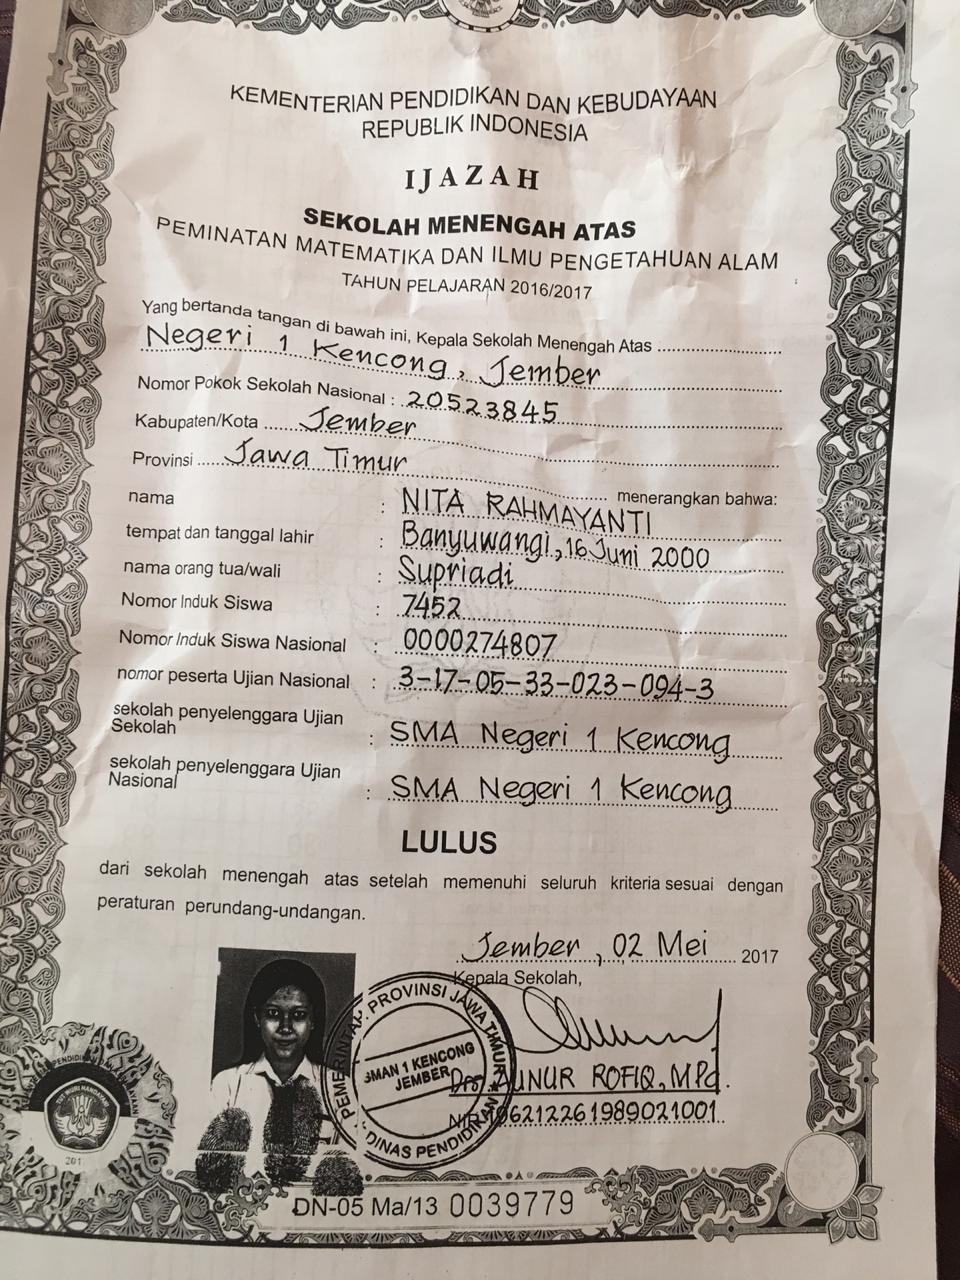 KEMENTERIAN PENDIDIKAN DAN KEBUDAYAAN
REPUBLIK INDONESIA
IJAZAH
SEKOLAH MENENGAH ATAS
PEMINATAN MATEMATIKA DAN ILMU PENGETAHUAN ALAM
TAHUN PELAJARAN 2016/2017
Yang bertanda tangan di bawah ini, Kepala Sekolah Menengah Atas
Negeri 1 Kencong, Jember
Nomor Pokok Sekolah Nasional : 20523845
Kabupaten/Kota Jember
Provinsi Jawa Timur
menerangkan bahwa:
nama : NITA RAHMAYANTI
tempat dan tanggal lahir : Banyuwangi, 16 Juni 2000
nama orang tua/wali : Supriadi
Nomor Induk Siswa : 7452
Nomor Induk Siswa Nasional : 0000274807
nomor peserta Ujian Nasional : 3-17-05-33-023-094-3
sekolah penyelenggara Ujian
Sekolah : SMA Negeri 1 Kencong
sekolah penyelenggara Ujian
Nasional : SMA Negeri 1 Kencong
LULUS
dari sekolah menengah atas setelah memenuhi seluruh kriteria sesuai dengan
peraturan perundang-undangan.
Jember, 02 Mei 2017
Kepala Sekolah,
PROVINSI JAWA TIMUR
SMAN 1 KENCONG
JEMBER
DINAS PENDIDIKAN
Drs. AUNUR ROFIQ, MPd.
NIP 196212261989021001
TUT WURI HANDAYANI
DN-05 Ma/13 0039779